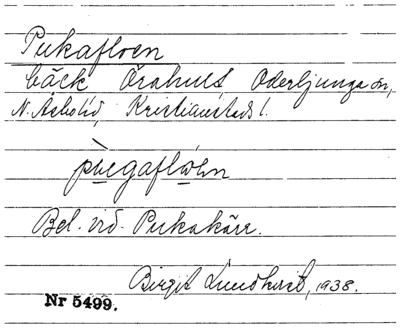 Pukafloen
bäck Örahult Oderljunga sn,
N. Åsbo hd, Kristianstads l.
pu̲egaflo̲en
Bel. vid Pukakärr.
Birgit Lundkvist, 1938.
Nr 5499.